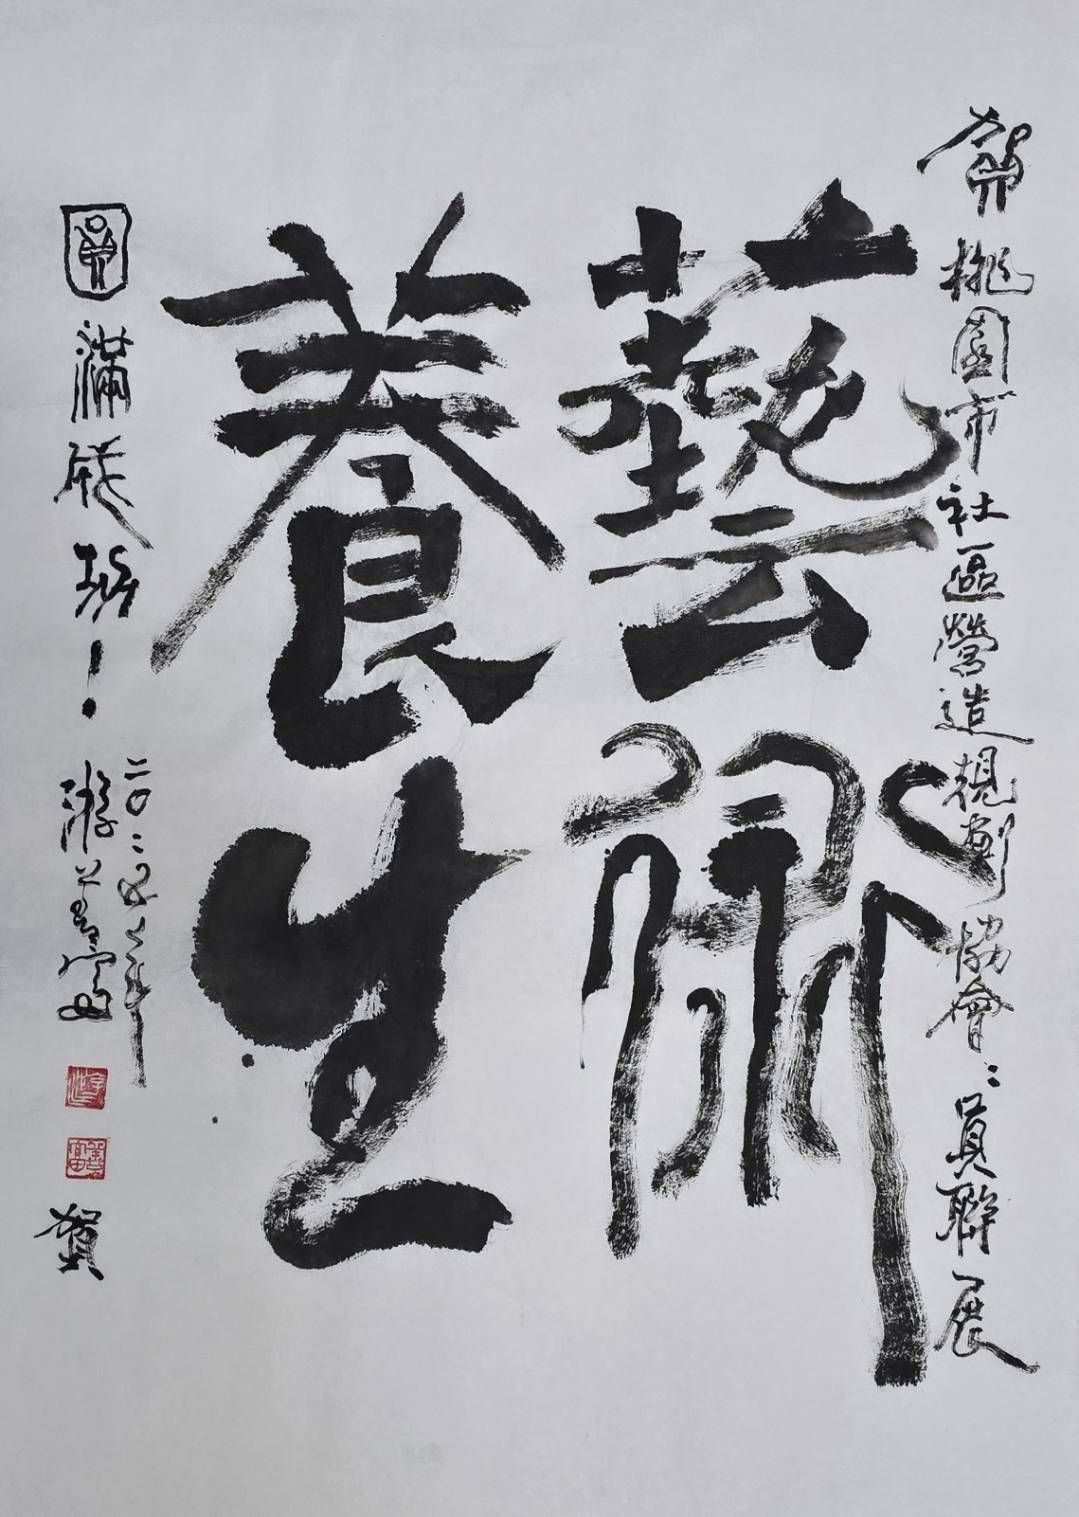 賀桃園市社區營造規劃協會會員聯展
藝術
養生
圓滿成功！
二〇二五年
游善富
賀